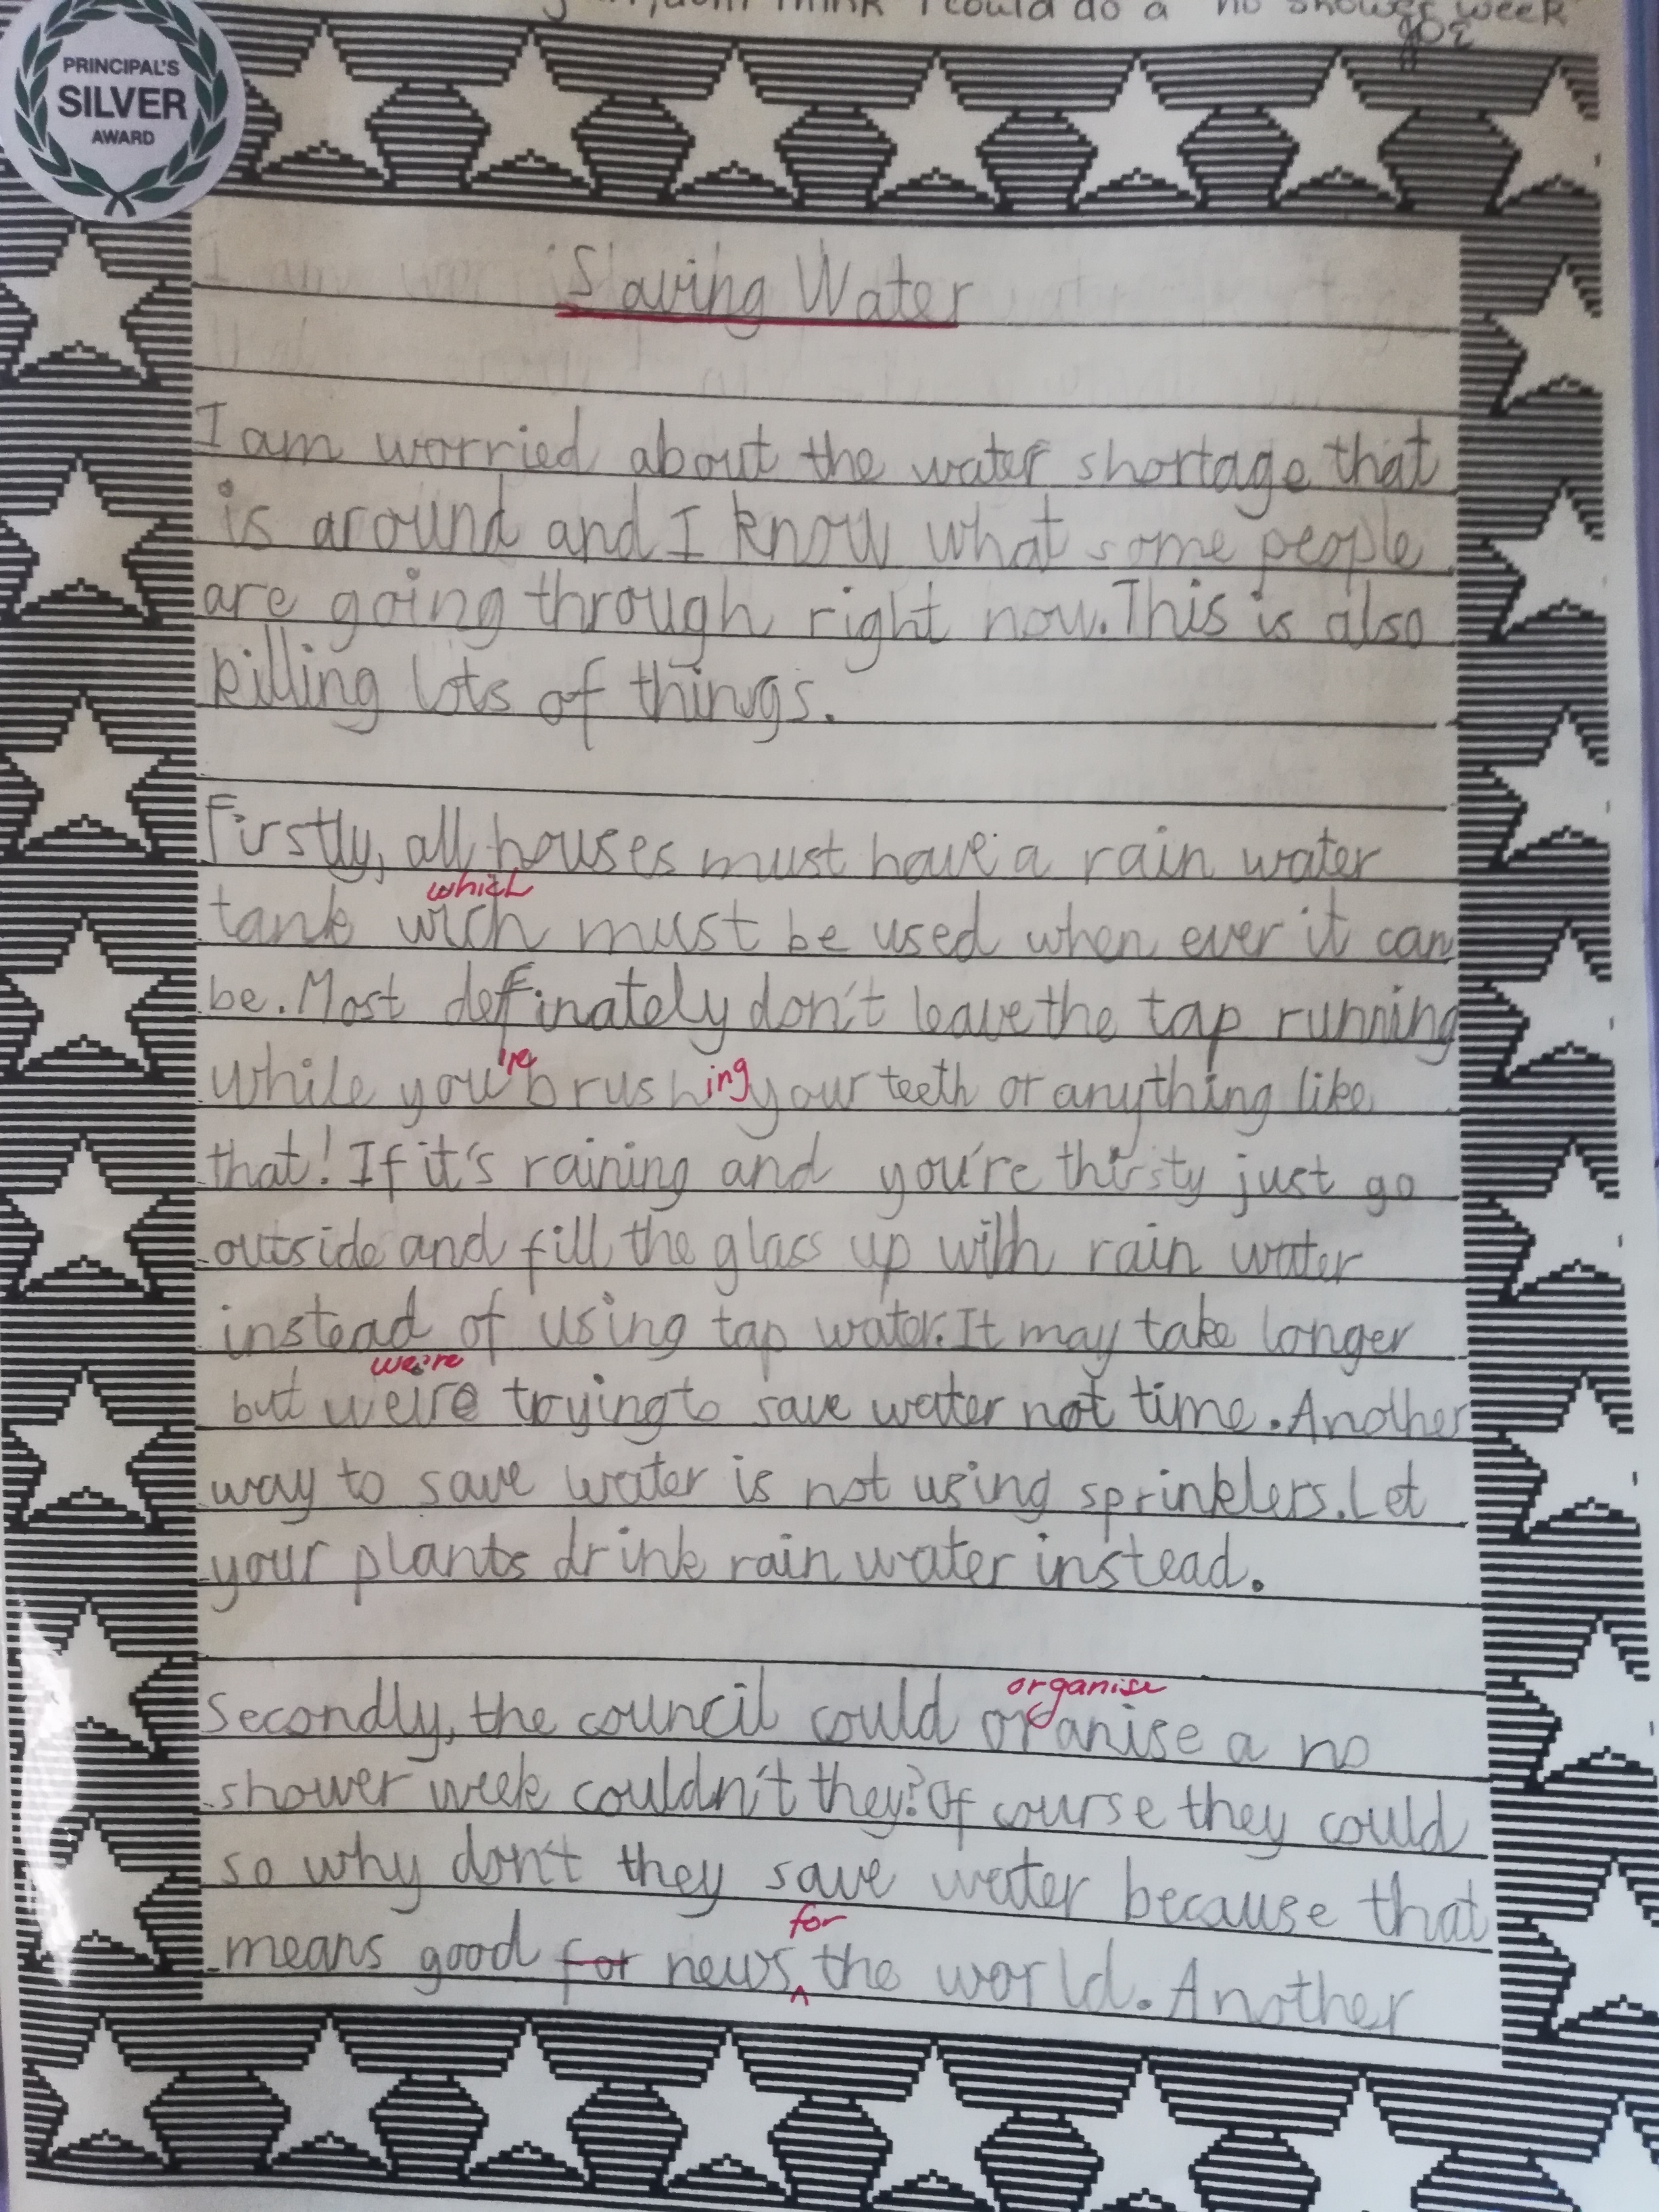 think I could do a "no shower week"
PRINCIPAL'S
SILVER
AWARD
Saving Water
I am worried about the water shortage that
is around and I know what some people
are going through right now. This is also
killing lots of things.
Firstly, all houses must have a rain water
which
tank wich must be used when ever it can
be. Most deffinately don't leave the tap running
while you're brushing your teeth or anything like
that! If it's raining and you're thirsty just go
outside and fill the glass up with rain water
instead of using tap water. It may take longer
we're
but we're trying to save water not time. Another
way to save water is not using sprinklers. Let
your plants drink rain water instead.
organise
Secondly, the council could organise a no
shower week couldn't they? Of course they could
so why don't they save water because that
for
means good for news ^ the world. Another